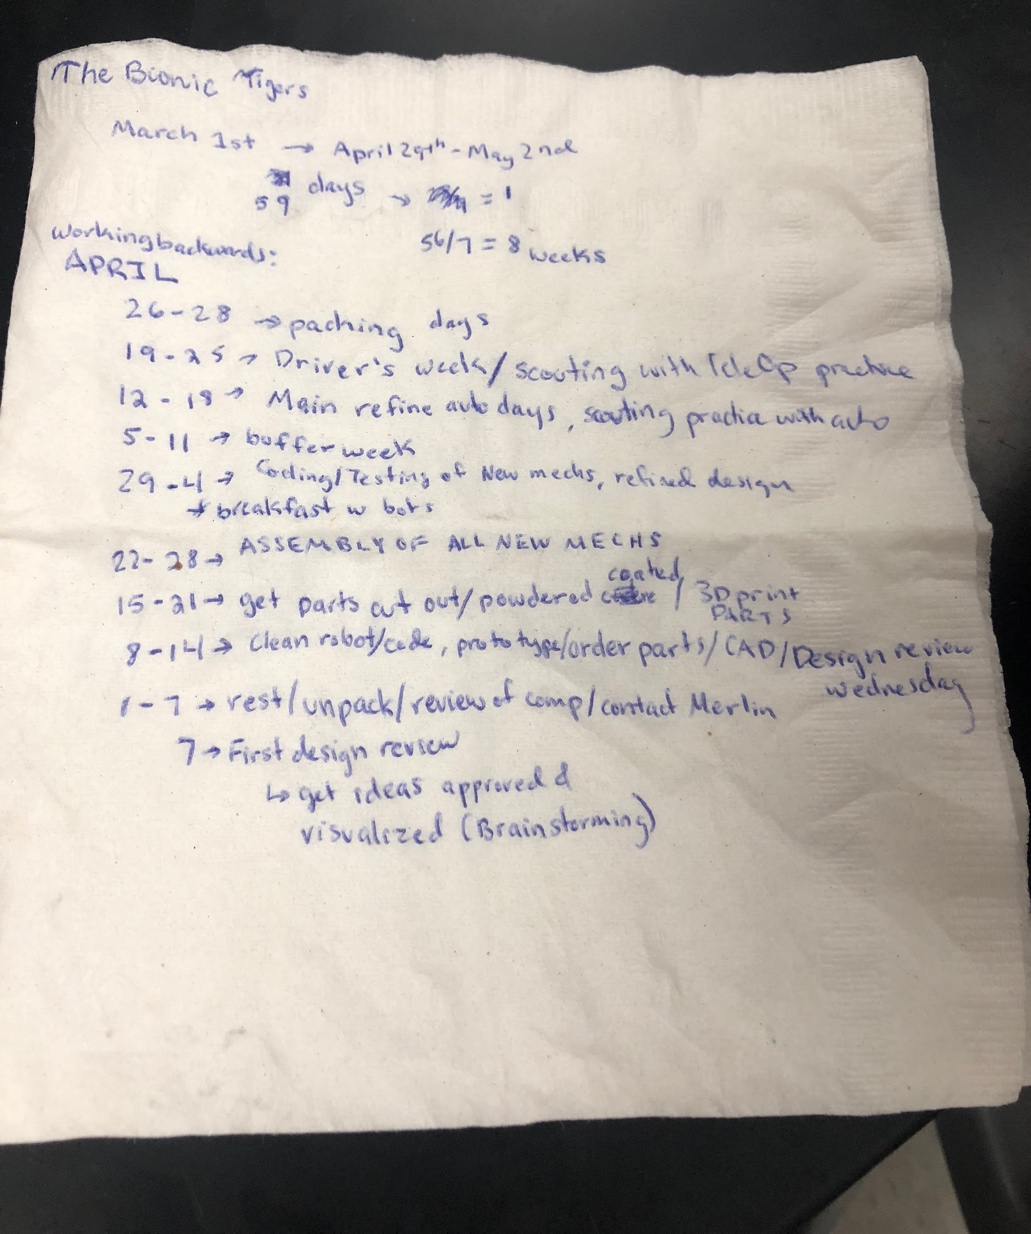 The Bionic Tigers
March 1st → April 29th - May 2nd
59 days → = 1
56/7 = 8 weeks
working backwards:
APRIL
26-28 → packing days
19-25 → Driver's week/scouting with TeleOp practice
12-18 → Main refine auto days, scouting practice with auto
5-11 → buffer week
29-4 → Coding/Testing of New mechs, refined design
breakfast w bots
22-28 → ASSEMBLY OF ALL NEW MECHS
15-21 → get parts cut out/powdered coated/3D print PARTS
8-14 → Clean robot/code, prototype/order parts/CAD/Design review
Wednesday
1-7 → rest/unpack/review of comp/contact Merlin
7 → First design review
↳ get ideas approved &
visualized (Brainstorming)